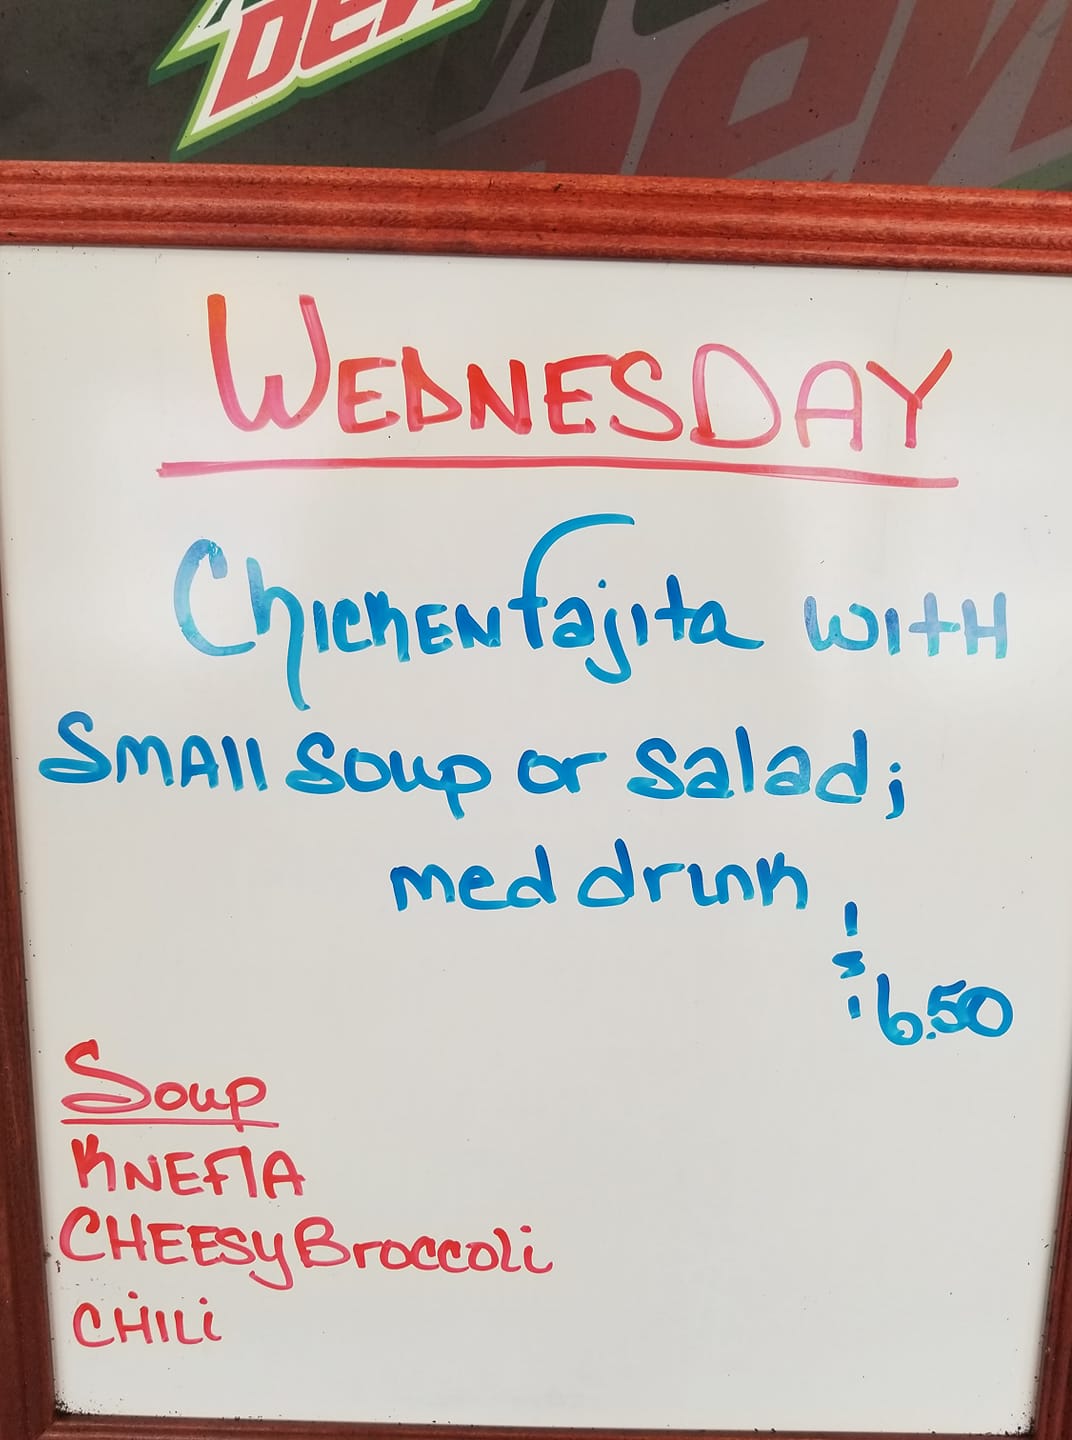 DEW
WEDNESDAY
Chicken fajita WITH
SMAll Soup or Salad;
med drink
$6.50
Soup
KNEFLA
CHEESy Broccoli
CHILi